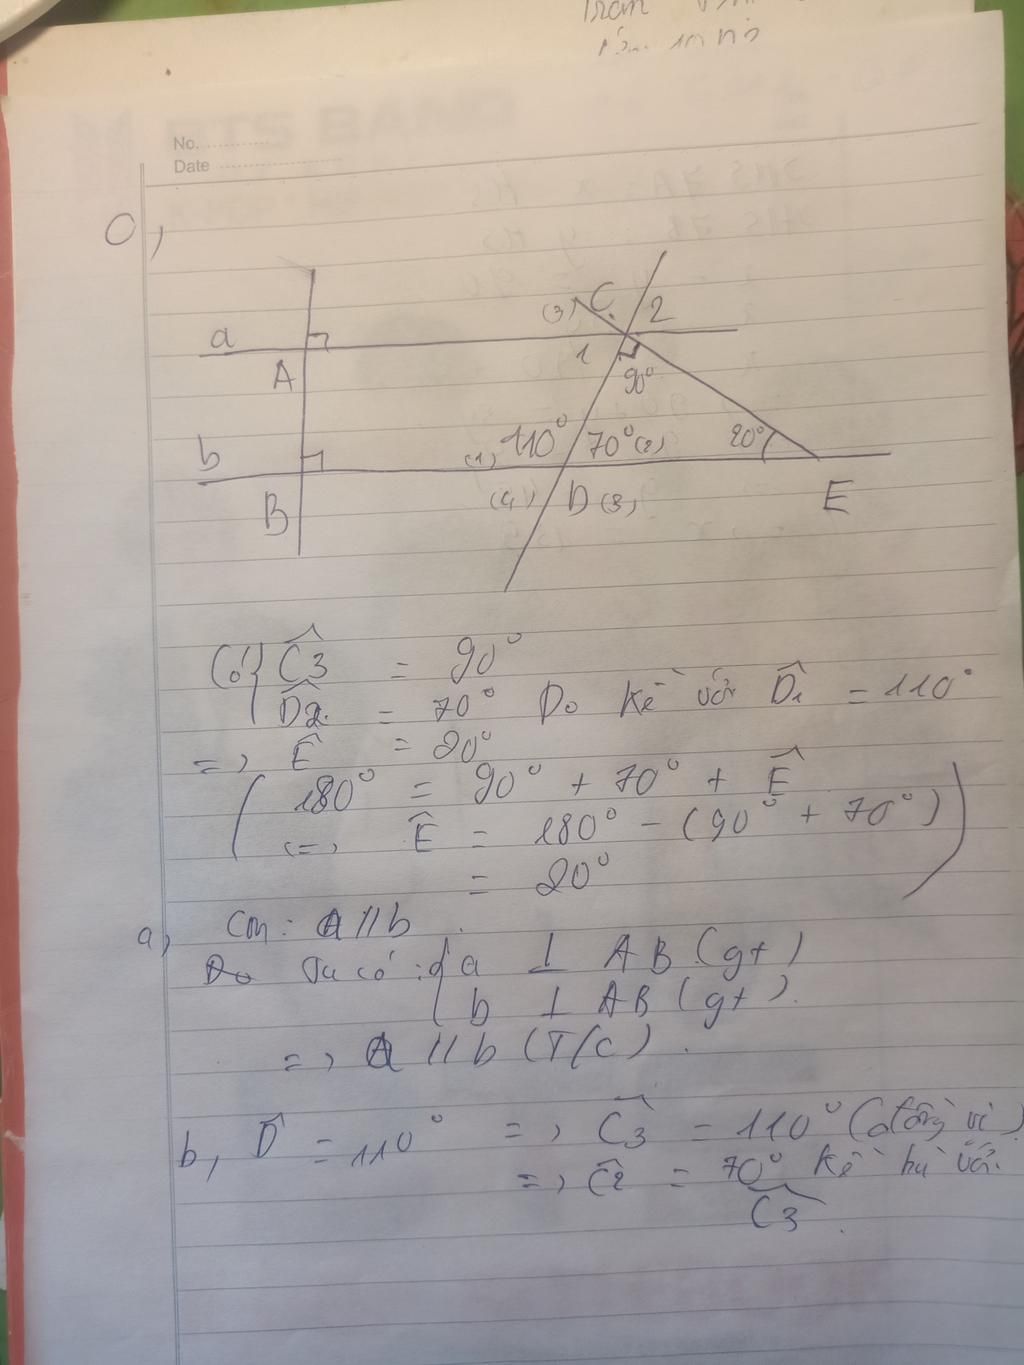 No.
Date
0,
(3) C 2
a
A
1
90°
b
(1) 110° 70° (2) 20°
B
(4) D (3)
E
Có { Ĉ3 = 90°
D̂2 = 70° Do kề với D̂1 = 110°
=> Ê = 20°
( 180° = 90° + 70° + Ê
(=> Ê = 180° - (90° + 70°)
= 20° )
a, Cm: a // b
Ta có : { a ⊥ AB (gt)
b ⊥ AB (gt).
=> a // b (T/c).
b, D̂ = 110° => Ĉ3 = 110° (đồng vị)
=> Ĉ2 = 70° kề bù với
Ĉ3.